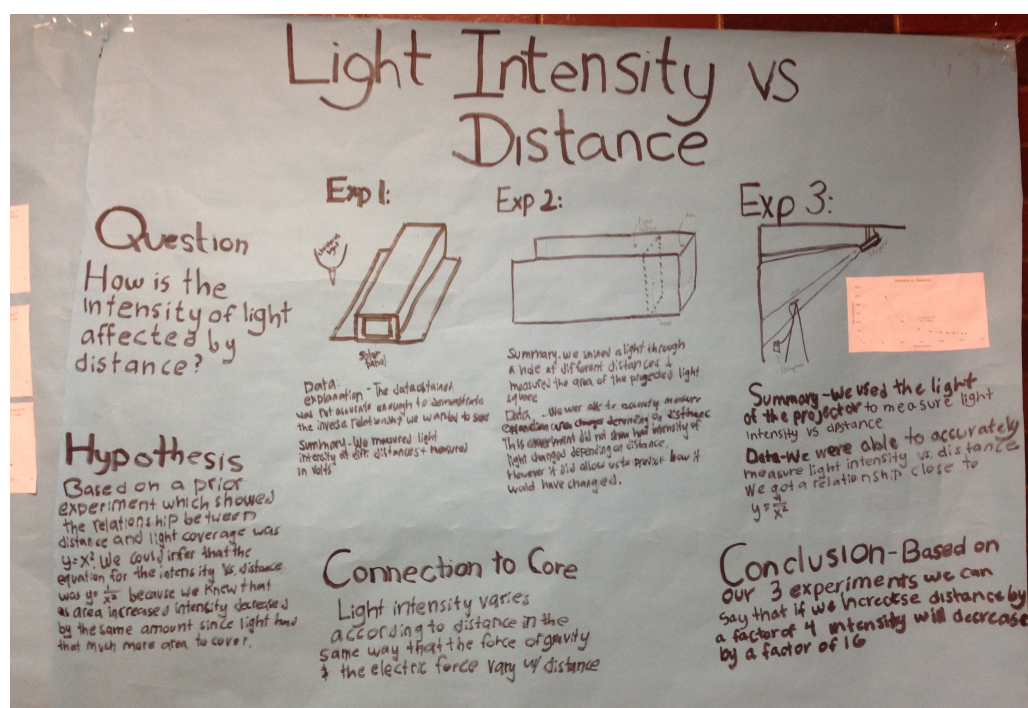 Light Intensity vs
Distance
Question
How is the
intensity of light
affected by
distance?
Hypothesis
Based on a prior
experiment which showed
the relationship between
distance and light coverage was
y=x². We could infer that the
equation for the intensity vs. distance
was y= 1/x² because we knew that
as area increased intensity decreased
by the same amount since light had
that much more area to cover.
Exp 1:
solar
panel
Data:
explanation - The data obtained
was not accurate enough to demonstrate
the inverse relationship we wanted to see
Summary- We measured light
intensity at diff. distances + measured
in Volts
Exp 2:
Summary- we shined a light through
a hole at different distances &
measured the area of the projected light
square
Data - We wer able to accuratly measure
explanation area changes depending on distance
This experiment did not show how intensity of
light changed depending on distance.
However it did allow us to predict how it
would have changed.
Exp 3:
Summary-We used the light
of the projector to measure light
intensity vs distance
Data-We were able to accurately
measure light intensity vs. distance
We got a relationship close to
y= /x²
Connection to Core
Light intensity varies
according to distance in the
same way that the force of gravity
& the electric force vary w/ distance
Conclusion-Based on
our 3 experiments we can
say that if we increase distance by
a factor of 4 intensity will decrease
by a factor of 16